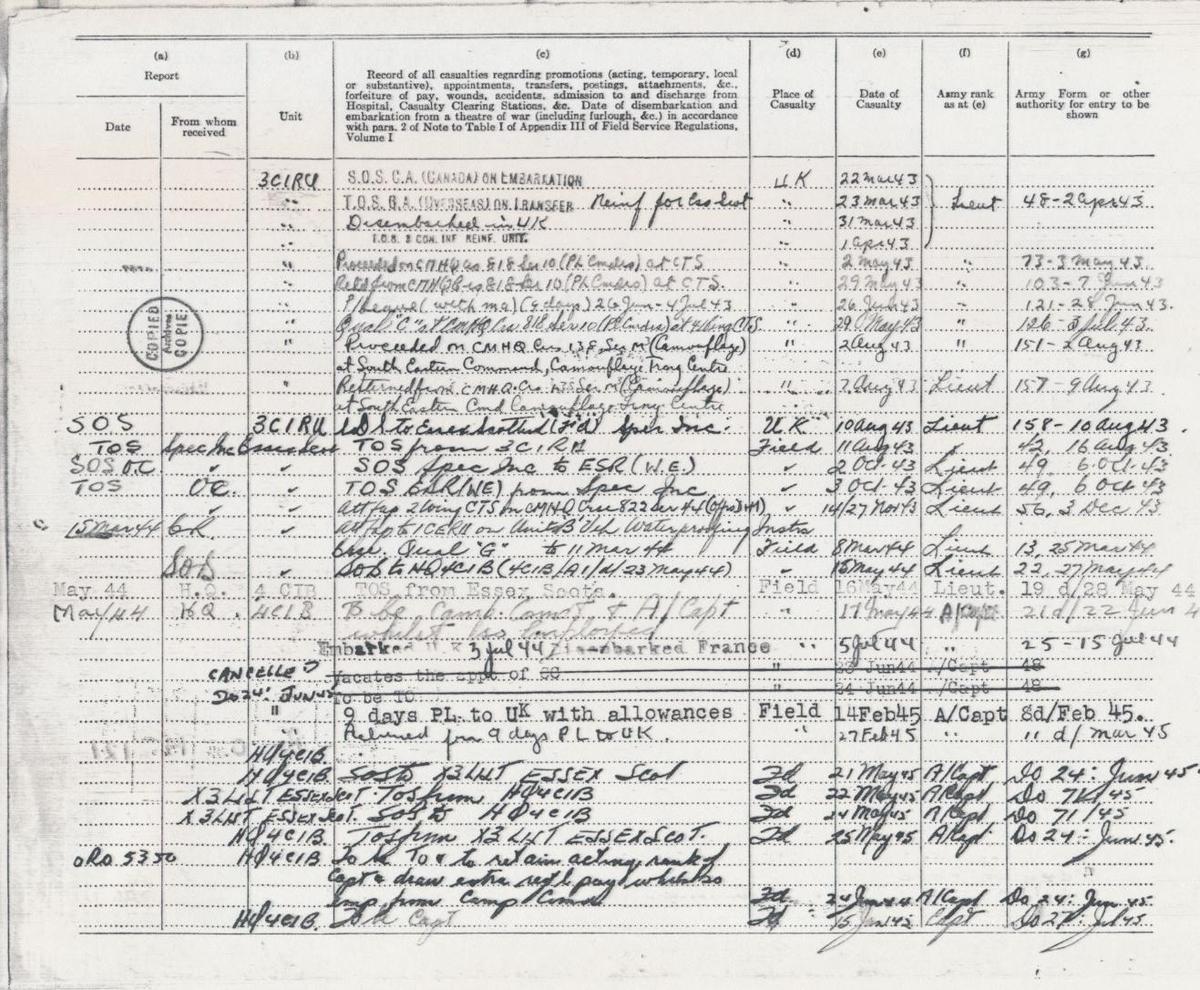 (a) (b) (c) (d) (e) (f) (g)
Report
Date
From whom received
Unit
Record of all casualties regarding promotions (acting, temporary, local
or substantive), appointments, transfers, postings, attachments, &c.,
forfeiture of pay, wounds, accidents, admission to and discharge from
Hospital, Casualty Clearing Stations, &c. Date of disembarkation and
embarkation from a theatre of war (including furlough, &c.) in accordance
with para. 2 of Note to Table I of Appendix III of Field Service Regulations,
Volume I
Place of Casualty
Date of Casualty
Army rank as at (e)
Army Form or other authority for entry to be shown
3CIRU S.O.S. C.A. (CANADA) ON EMBARKATION UK 22 Mar 43
" T.O.S. C.A. (OVERSEAS) ON TRANSFER Reinf for Ess Scot " 23 Mar 43 Lieut 48-2 Apr 43
" Disembarked in UK " 31 Mar 43
" T.O.S. 3 CDN. INF. REINF. UNIT. " 1 Apr 43
" Proceeded on CMHQ Crs 818 Ser 10 (Pl Cmdrs) at CTS " 2 May 43 " 73-3 May 43
" Retd from CMHQ Crs 818 Ser 10 (Pl Cmdrs) at CTS. " 29 May 43 " 103-7 Jun 43
" P/Leave (with ma) (9 days) 26 Jun - 4 Jul 43 " 26 Jun 43 " 121-28 Jun 43.
" Qual "C" at CMHQ Crs 818 Ser 10 (Pl Cmdrs) at 4 Wing CTS. " 29 May 43 " 126-3 Jul 43.
COPIED Archives COPIE
" Proceeded on CMHQ Crs 138 Ser M (Camouflage) " 2 Aug 43 " 151-2 Aug 43
at South Eastern Command, Camouflage Trng Centre
" Returned from CMHQ Crs Ser M (Camouflage) " 7 Aug 43 Lieut 157-9 Aug 43
at South Eastern Cmd Camouflage Trng Centre
SOS 3CIRU to Essex Scottish (Fd) Spec Inc. UK 10 Aug 43 Lieut 158-10 Aug 43
TOS Spec Inc Essex Scot TOS from 3CIRU Field 11 Aug 43 42, 16 Aug 43
SOS OC ✓ SOS Spec Inc to ESR (W.E.) ✓ 2 Oct 43 Lieut 49 6 Oct 43
TOS OC. ✓ TOS ESR (WE) from Spec Inc ✓ 3 Oct 43 Lieut 49, 6 Oct 43
✓ Att for 2 Wing CTS on CMHQ Crse 822 Ser 44 ✓ 14/27 Nov 43 Lieut 56, 3 Dec 43
15 Mar 44 ✓ Att for to 1 CERU on Unit "B" Veh Waterproofing Instrs
Crse. Qual "G" to 11 Mar 44 Field 8 Mar 44 Lieut 13, 25 Mar 44
SOS ✓ SOS to HQ 4CIB (4CIB/A1/d/23 May 44) ✓ 15 May 44 Lieut 22, 27 May 44
May 44 H.Q. 4 CIB TOS from Essex Scots. Field 16 May 44 Lieut. 19 d/28 May 44
May 44 HQ 4CIB To be Camp Comdt & A/Capt 17 May 44 A/Capt 21 d/22 Jun 4
whilst so Employed
Embarked U.K 3 Jul 44 Disembarked France " 5 Jul 44 " 25-15 Jul 44
CANCELLED Vacates the appt of CC " 23 Jun 44 A/Capt 48
Do 24: JUN 45 To be TO " 24 Jun 44 A/Capt 48
" 9 days PL to UK with allowances Field 14 Feb 45 A/Capt 8d/Feb 45.
" Returned from 9 days PL to UK. " 27 Feb 45 " 11 d/ Mar 45
HQ 4CIB.
HQ 4CIB. SOS to X3 LIST ESSEX Scot Fd 21 May 45 A/Capt Do 24: Jun 45.
X3 LIST ESSEX Scot. TOS from HQ 4CIB Fd 22 May 45 A/Capt Do 71/45
X3 LIST ESSEX Scot. SOS to HQ 4CIB Fd 24 May 45 A/Capt Do 71/45
HQ 4CIB. TOS from X3 LIST ESSEX Scot. Fd 25 May 45 A/Capt Do 24: Jun 45.
oRo 5350 HQ 4CIB To be TO & to retain acting rank of
Capt & draw extra regtl pay whilst so
emp. from Camp Comdt Fd 24 Jun 44 A/Capt Do 24: Jun 45
HQ 4CIB. To be Capt Fd 15 45 Capt Do 27: Jul 45